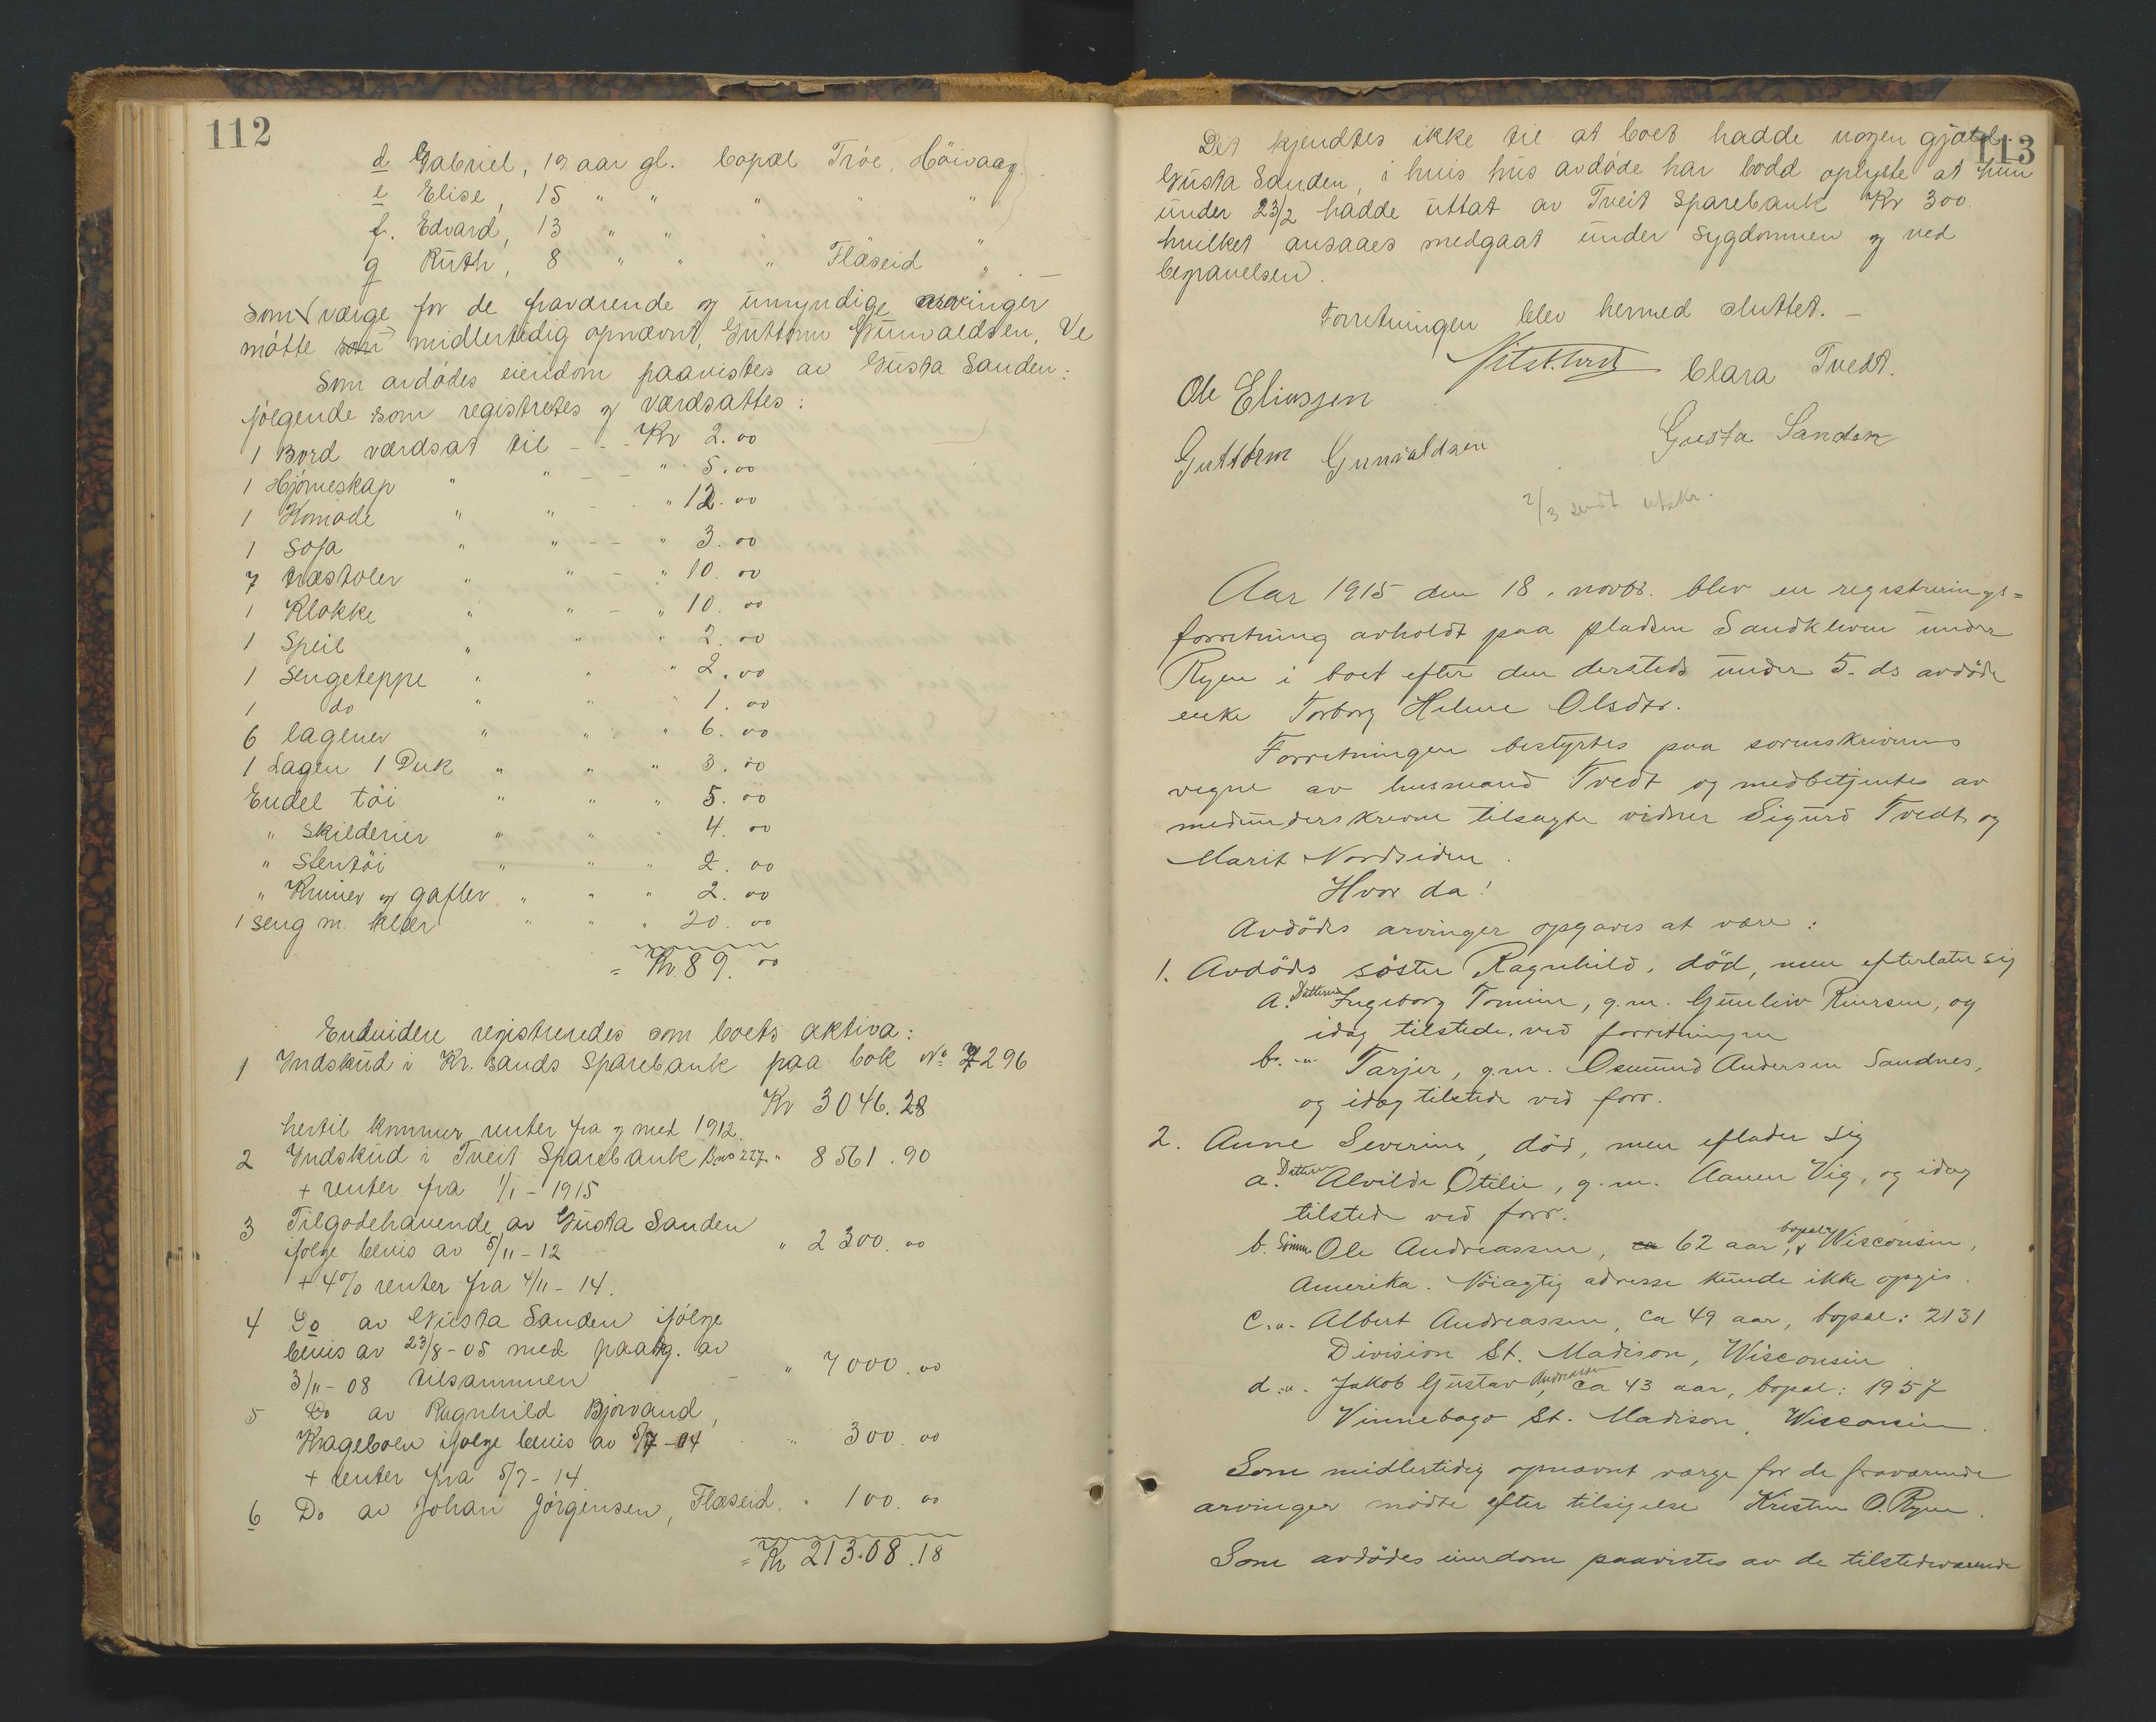 112
d Gabriel, 19 aar gl. bopæl Tróe, Höivaag.
e Elise, 15 " " " " "
f. Edvard, 13 " " " "
g Ruth, 8 " " " Flaseid " . —
Som værge for de fraværende og umyndige arvinger
måtte som midlertidig opnævnt, Guttorm Gunvaldsen, Ve
Som avdödes eiendom paavistes av Gusta Sanden:
følgende som registretes og værdsattes:
1 Bord værdsat til - - - Kr 2.00
1 Hjórneskap " " - - " 5.00
1 Komode " " - - " 12.00
1 Sofa " " - - " 3.00
7 træstoler " " - " 10.00
1 Klokke " " - " 10.00
1 Speil " " " 2.00
1 Sengeteppe " " " 2.00
1 do " " " 1.00
6 lagener " " " 6.00
1 Lagen 1 Duk " " " 3.00
Endel töi " " " 5.00
" Skilderier " " " 4.00
" Stentöi " " " 2.00
" Kniver og gafler " " " 2.00
1 seng m. klær " " " 20.00
= Kr. 89.00
Endvidere registreredes som boets aktiva:
1 Indskud i Kr. sands Sparebank paa bok No 7296
Kr 3046.28
hertil kommer renter fra og med 1912.
2 Indskud i Tveit Sparebank B.no 227 " 8561.90
+ renter fra 1/1 - 1915
3 Tilgodehavende av Gusta Sanden
ifølge bevis av 5/11-12 " 2300.00
+ 4% renter fra 4/11-14.
4 Do av Gusta Sanden ifölge
bevis av 23/8-05 med paategn. av
3/11-08 tilsammen - " 7000.00
5 Do av Ragnhild Bjorvand,
Krageboen ifølge bevis av 5/7-04 " 300.00
+ renter fra 5/7-14
6 Do av Johan Jörgensen, Flaseid. " 100.00
= Kr 213.08.18
113
Det kjendtes ikke til at boet hadde nogen gjæld.
Gusta Sanden, i hvis hus avdøde har bodd oplyste at hun
under 23/2 hadde uttat av Tveit Sparebank Kr 300.
hvilket ansaaes medgaat under sygdommen og ved
begravelsen.
Forretningen blev hermed sluttet. —
Clara Tvedt.
Ole Eliassen
Gusta Sanden
Guttorm Gunvaldsen
2/3 sendt utskr.
Aar 1915 den 18. novbr. blev en registrerings=
forretning avholdt paa pladsen Sandkleven under
Ryen i boet efter den dersteds under 5. ds avdöde
enke Torborg Helene Olsdtr.
Forretningen bestyrtes paa sorenskriverens
vegne av husmand Tvedt og medbetjentes av
medunderskrevne tilsagte vidner Sigurd Tvedt og
Marit Nordsiden.
Hvor da!
Avdödes arvinger opgaves at være:
1. Avdöds söster Ragnhild, död, men efterlater sig
a. Datteren Ingeborg Tomine, g.m. Gunleiv Reiersen, og
idag tilstede ved forretningen
b. -"- Tarjer, g.m. Osmund Andersen Sandnes,
og idag tilstede ved forr.
2. Anne Severine, död, men eflader sig
a. Datteren Alvilde Otilie, g.m. Aanen Vig, og idag
tilstede ved forr.
b. Sönnen Ole Andreassen, ca 62 aar, bopæl Wisconsin,
Amerika. Nöiagtig adresse kunde ikke opgis.
c. -"- Albert Andreassen, ca 49 aar, bopæl: 2131
Division St. Madison, Wisconsin.
d. -"- Jakob Gustav Andreassen, ca 43 aar, bopæl: 1957
Vinnebago St. Madison, Wisconsin.
Som midlertidig opnævnt værge for de fraværende
arvinger mödte efter tilsigelse Kristen O. Ryen.
Som avdödes eiendom paavistes av de tilstedeværende